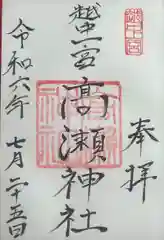 奉拝
越中一宮髙瀬神社
令和六年七月二十五日